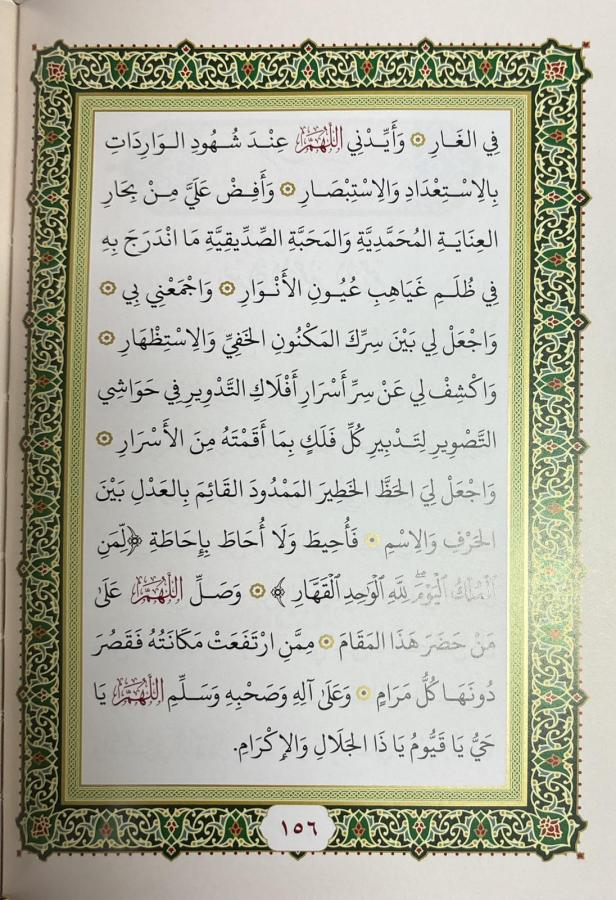 فِي الغَارِ ۞ وَأَيِّدْنِي اللَّهُمَّ عِنْدَ شُهُودِ الوَارِدَاتِ
بِالِاسْتِعْدَادِ وَالِاسْتِبْصَارِ ۞ وَأَفِضْ عَلَيَّ مِنْ بِحَارِ
العِنَايَةِ المُحَمَّدِيَّةِ وَالمَحَبَّةِ الصِّدِّيقِيَّةِ مَا انْدَرَجَ بِهِ
فِي ظُلَمِ غَيَاهِبِ عُيُونِ الأَنْوَارِ ۞ وَاجْمَعْنِي بِي ۞
وَاجْعَلْ لِي بَيْنَ سِرِّكَ المَكْنُونِ الخَفِيِّ وَالِاسْتِظْهَارِ ۞
وَاكْشِفْ لِي عَنْ سِرِّ أَسْرَارِ أَفْلَاكِ التَّدْوِيرِ فِي حَوَاشِي
التَّصْوِيرِ لِتَدْبِيرِ كُلِّ فَلَكٍ بِمَا أَقَمْتَهُ مِنَ الأَسْرَارِ ۞
وَاجْعَلْ لِيَ الحَظَّ الخَطِيرَ المَمْدُودَ القَائِمَ بِالعَدْلِ بَيْنَ
الحَرْفِ وَالِاسْمِ ۞ فَأُحِيطَ وَلَا أُحَاطَ بِإِحَاطَةِ ﴿لِّمَنِ
ٱلْمُلْكُ ٱلْيَوْمَۖ لِلَّهِ ٱلْوَٰحِدِ ٱلْقَهَّارِ﴾ ۞ وَصَلِّ اللَّهُمَّ عَلَى
مَنْ حَضَرَ هَذَا المَقَامَ ۞ مِمَّنِ ارْتَفَعَتْ مَكَانَتُهُ فَقَصُرَ
دُونَهَا كُلُّ مَرَامٍ ۞ وَعَلَى آلِهِ وَصَحْبِهِ وَسَلِّمِ اللَّهُمَّ يَا
حَيُّ يَا قَيُّومُ يَا ذَا الجَلَالِ وَالإِكْرَامِ.
١٥٦